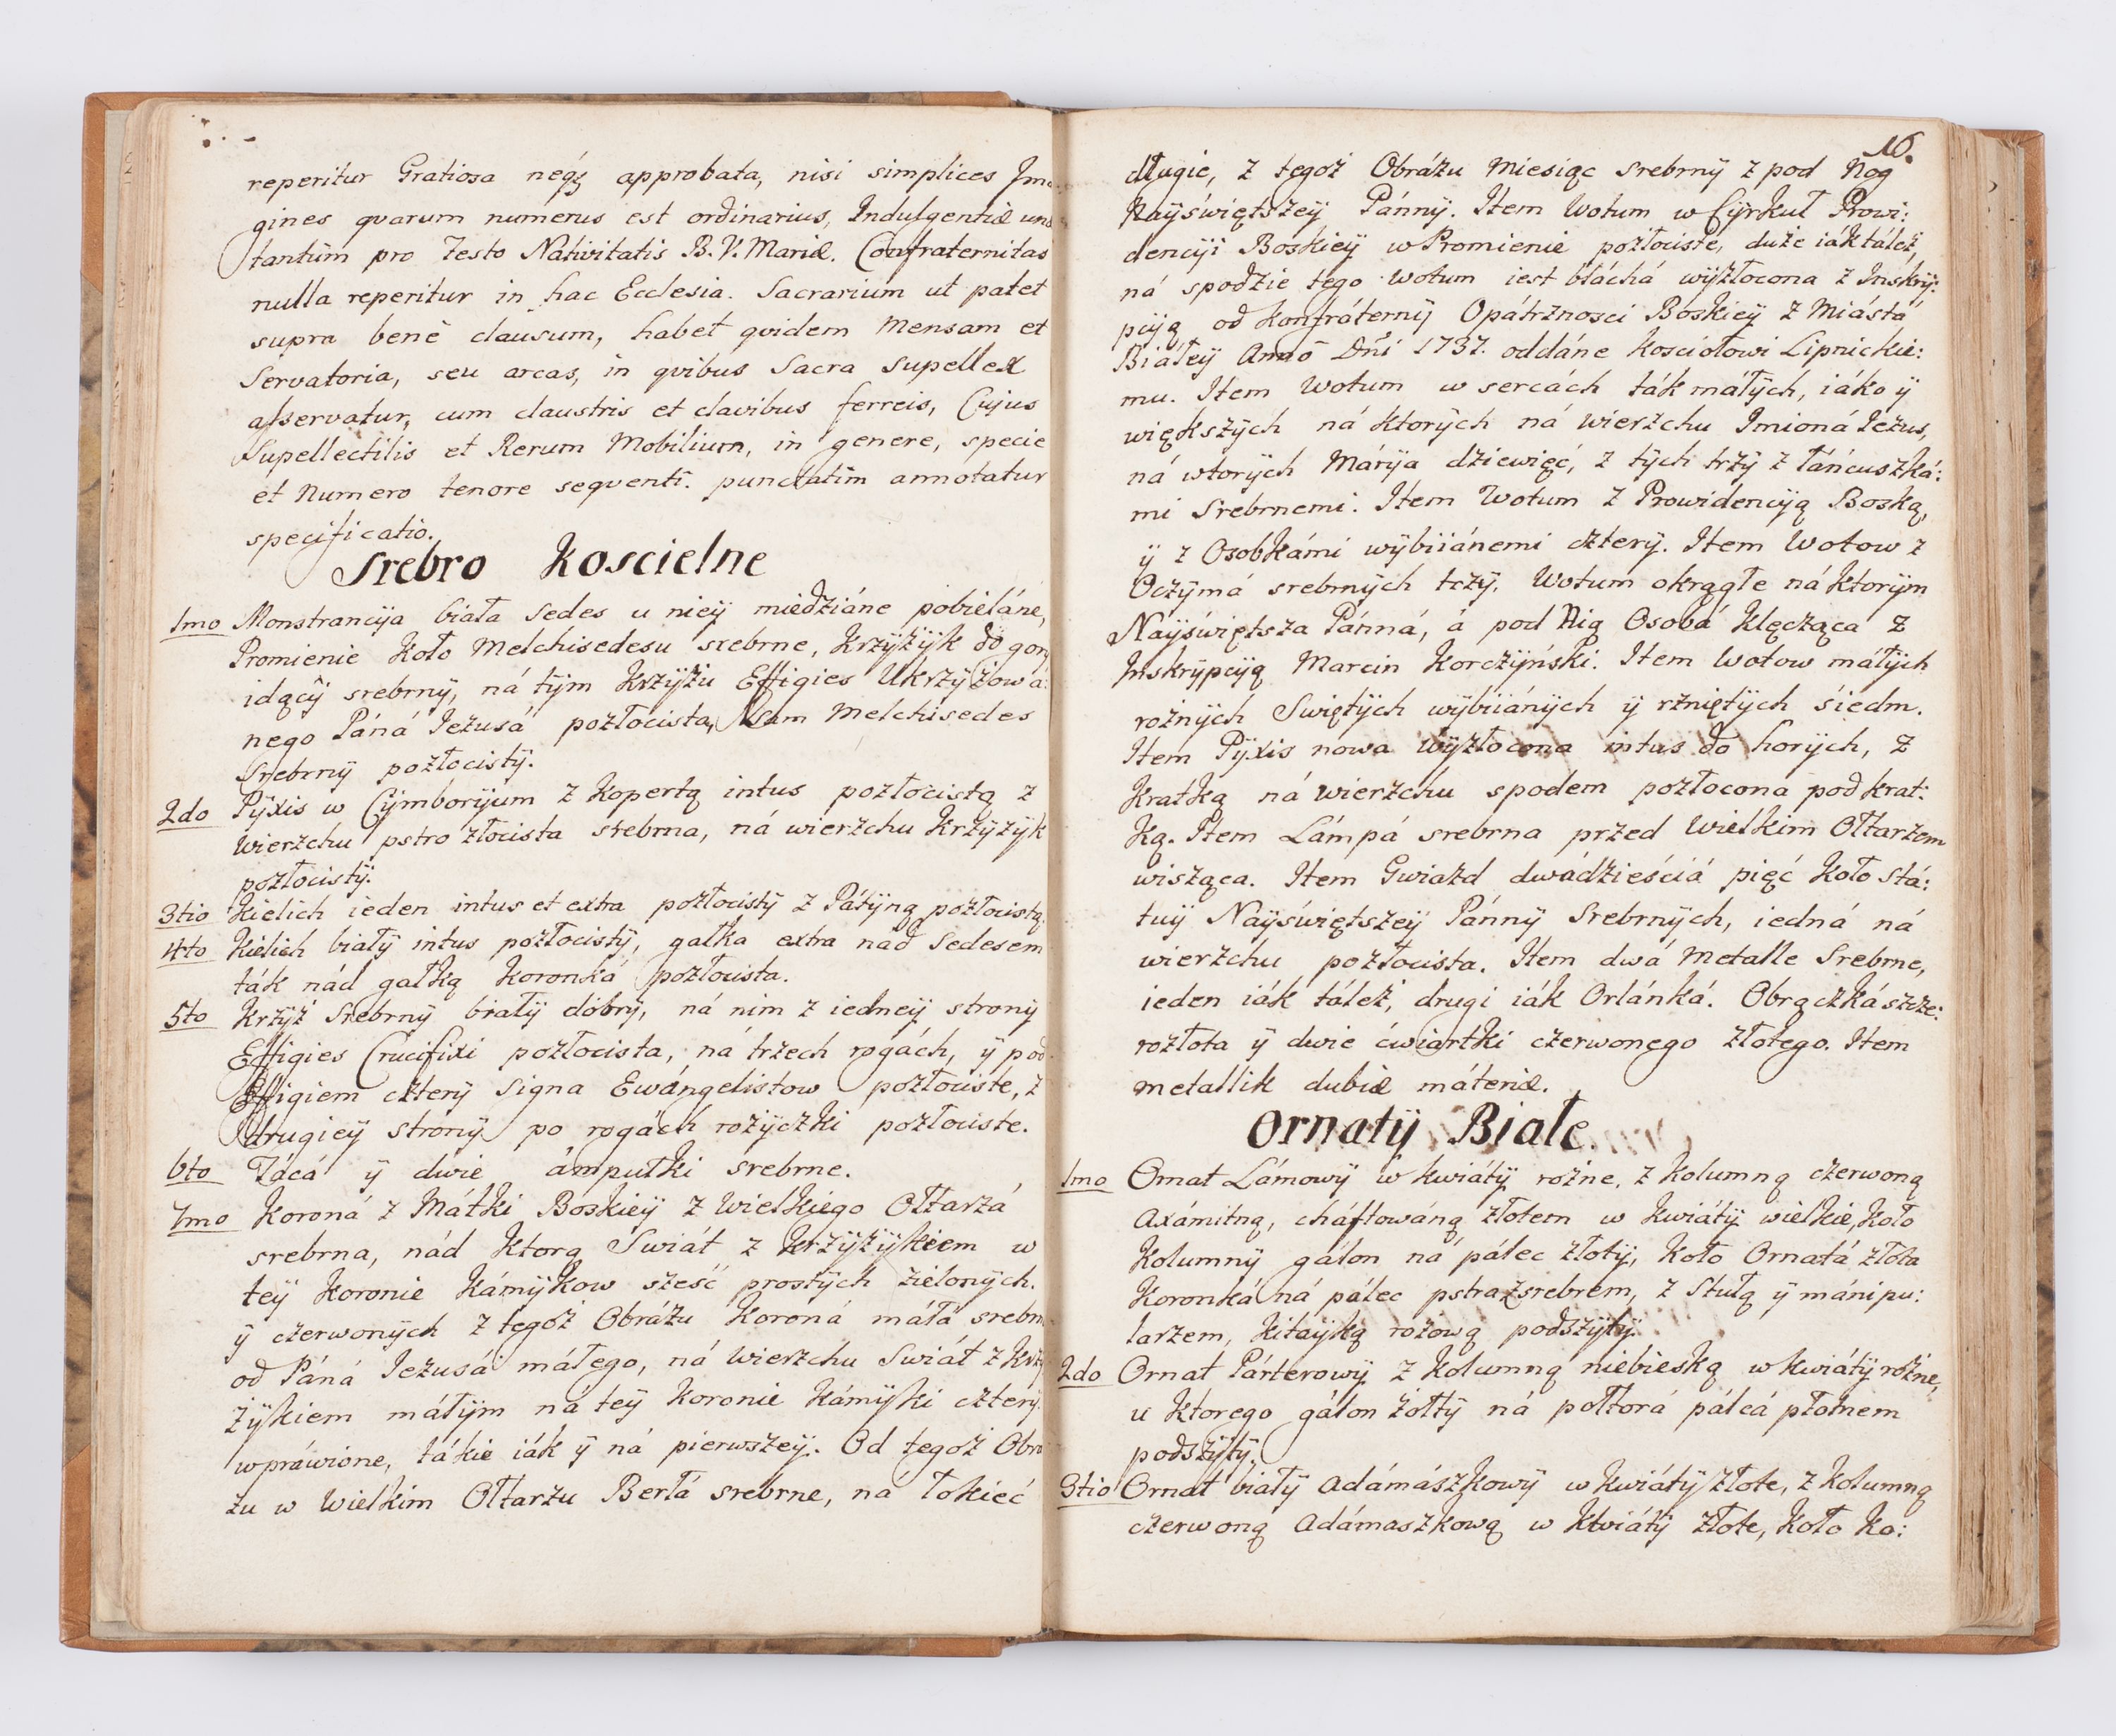 reperitur Gratiosa neq́ʒ approbata, nisi simplices Ima
gines qvarum numerus est ordinarius, Indulgentiæ una
tantûm pro Festo Nativitatis B. V. Mariæ. Confraternitas
nulla reperitur in hac Ecclesia. Sacrarium ut patet
supra benè clausum, habet qvidem Mensam et
Servatoria, seu arcas, in qvibus Sacra Supellex
asservatur, cum claustris et clavibus ferreis, Cujus
Supellectilis et Rerum Mobilium, in genere, specie
et Numero tenore seqventi. punctatîm annotatur
specificatio.
Srebro Koscielne
1mo Monstrancÿa biała Sedes u nieÿ miedźiáne pobieláne,
Promienie Koło Melchisedesu srebrne, Krzÿżÿk do gorÿ
idącÿ srebrnÿ, ná tÿm Krzÿżu Effigies Ukrzÿżowá:
nego Páná Jezusá pozłocista, Sam Melchisedes
Srebrnÿ pozłocistÿ.
2do Pÿxis w Cÿmborÿum z Kopertą intus pozłocistą z
wierzchu pstro złocista srebrna, ná wierzchu Krzÿżÿk
pozłocistÿ.
3tio Kielich ieden intus et extra pozłocistÿ z Pátÿną pozłocistą.
4to Kielich białÿ intus pozłocistÿ, gałka extra nad Sedesem
ták nád gałką Koronká pozłocista.
5to Krzÿż Srebrnÿ białÿ dobrÿ, ná nim z iedneÿ stronÿ
Effigies Crucifixi pozłocista, ná trzech rogách, ÿ pod
Effigiem czterÿ Signa Ewángelistow pozłociste, z
drugieÿ stronÿ po rogách rożÿczki pozłociste.
6to Tácá ÿ dwie ámpułki srebrne.
7mo Koroná z Mátki Boskieÿ z Wielkiego Ołtarzá
srebrna, nád Ktorą Swiát z Krzÿżÿkiem w
teÿ Koronie Kámÿkow sześć prostÿch zielonÿch.
ÿ czerwonÿch z tegoż Obrázu Koroná máła srebrn
od Páná Jezusá máłego, ná wierzchu Swiát z Krzÿ
żÿkiem máłÿm ná teÿ Koronie Kámÿki czterÿ.
wpráwione, tákie iák ÿ ná pierwszeÿ. Od tegoż Obrá
zu w Wielkim Ołtarzu Berłá srebrne, ná łokieć
16.
długie, z tegoż Obrázu Miesiąc srebrnÿ z pod Nog
Naÿświętszeÿ Pánnÿ. Item Wotum w Cÿrkuł Prowi:
dencÿi Boskieÿ w Promienie pozłociste, duże iák tálež,
ná spodzie tego Wotum iest bláchá wÿzłocona z Inskrÿ:
pcÿą od Konfráternÿ Opátrznosci Boskieÿ z Miástá
Białeÿ Annô Dñi 1737. oddáne Kosciołowi Lipnickie:
mu. Item Wotum w sercách ták máłÿch, iáko ÿ
większÿch ná Ktorÿch ná wierzchu Imioná Jezus,
ná wtorÿch Márÿa dziewięć, z tÿch trzÿ z łáńcuszká:
mi Srebrnemi. Item Wotum z Prowidencÿą Boską,
ÿ z Osobkámi wÿbiiánemi czterÿ. Item Wotow z
Oczÿmá srebrnÿch trzÿ. Wotum okrągłe ná Ktorÿm
Naÿświętsza Pánná, á pod Nią Osobá Klęcząca z
Inskrÿpcÿą Marcin Korczÿński. Item Wotow máłÿch
rożnÿch Swiętÿch wÿbiiánÿch ÿ rzniętÿch śiedm.
Item Pÿxis nowa wÿzłocona intus do horÿch, z
Kratką ná wierzchu spodem pozłocona pod krat:
Ką. Item Lámpá srebrna przed Wielkim Ołtarzem
wisząca. Item Gwiazd dwádzieściá pięć Koło Stá:
tuÿ Naÿświętszeÿ Pánnÿ Srebrnÿch, iedná ná
wierzchu pozłocista. Item dwá Metalle Srebrne,
ieden iák tálež, drugi iák Orlánká. Obrączká szcze:
rozłota ÿ dwie ćwiartki czerwonego złotego. Item
metallik dubiæ máteriæ.
Ornatÿ Białe.
1mo Ornat Lámowÿ w kwiátÿ rożne, z Kolumną czerwoną
Axámitną, cháftowáną złotem w Kwiátÿ wielkie, Koło
Kolumnÿ gálon ná pálec złotÿ, Koło Ornatá złota
Koronká ná pálec pstra z srebrem, z Stułą ÿ mánipu:
larzem, Kitaÿką rożową podszÿtÿ.
2do Ornat Párterowÿ z Kolumną niebieską w kwiátÿ rożne,
u Ktorego gálon żółtÿ ná połtorá pálcá płotnem
podszÿtÿ.
3tio Ornat białÿ Adámászkowÿ w kwiátÿ złote, z Kolumną
czerwoną Adámaszkową w Kwiátÿ złote, Koło Ko: